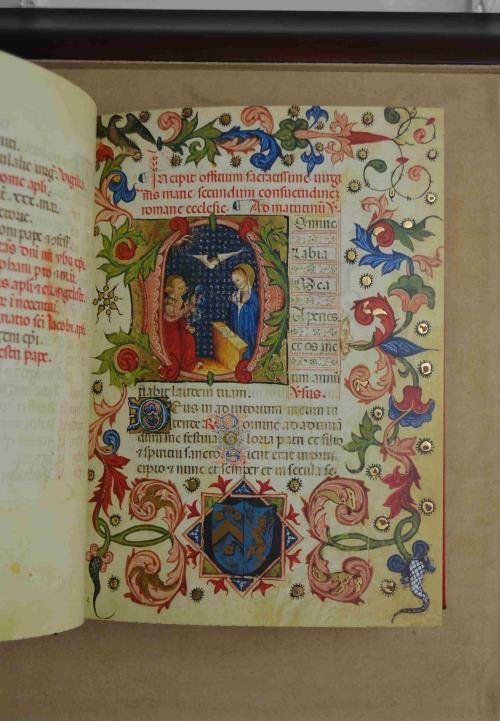 nri.
Vigilia
ome apli.
t. xxx. mar.
ctorie.
ni pape ⁊ ofess.
tas dni nri yhu xpi.
phani pto ⁊ m.
s apli ⁊ euangeliste
⁊ innocentii
natio sci Iacobi apli.
tem epi.
estri pape.
Incipit offitium sacratissime uirgi
nis marie secundum consuetudinez
romane ecclesie. Ad matutinu ℣.
Domine
labia
mea
aperies.
et os me
um annū
tiabit laudem tuam. Vsus.
Deus in adiutorium meum in
tende ℟ Domine ad adiuuan
dum me festina Gloria patri et filio
et spiritui sancto Sicut erat in prin
cipio ⁊ nunc et semper et in secula se.